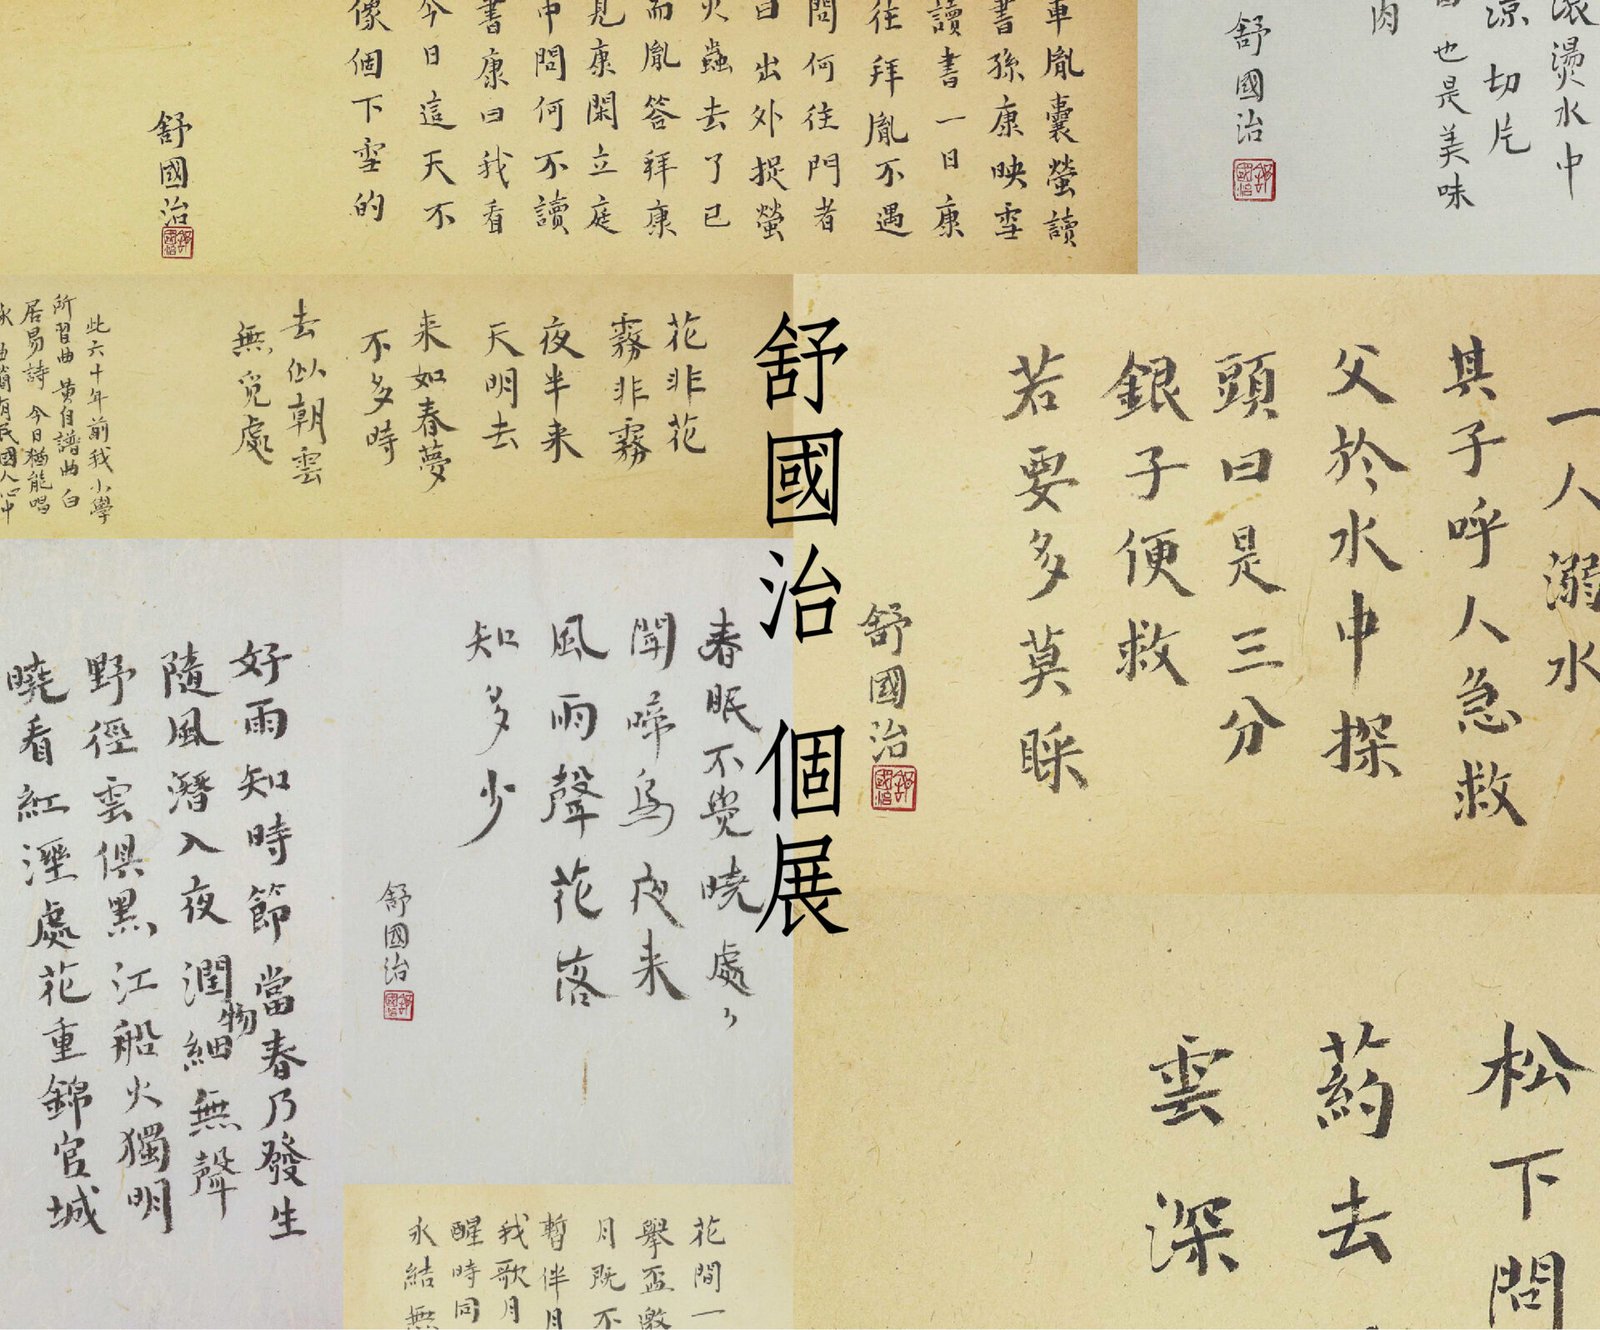 車胤囊螢讀
書孫康映雪
讀書一日康
往拜胤不遇
問何往門者
曰出外捉螢
火蟲去了已
而胤答拜康
見康閑立庭
中問何不讀
書康曰我看
今日這天不
像個下雪的
舒國治
滾燙水中
涼切片
也是美味
肉
舒國治
花非花
霧非霧
夜半来
天明去
来如春夢
不多時
去似朝雲
無覓處
此六十年前我小學
所習曲黃自譜曲白
居易詩今日猶能唱
舒國治 個展
一人溺水
其子呼人急救
父於水中探
頭曰是三分
銀子便救
若要多莫睬
舒國治
春眠不覺曉處〻
聞啼鳥夜来
風雨聲花落
知多少
舒國治
好雨知時節當春乃發生
隨風潛入夜潤物細無聲
野徑雲俱黑江船火獨明
曉看紅溼處花重錦官城
松下問
葯去
雲深
花間一
舉盃邀
月既不
暫伴月
我歌月
醒時同
永結無